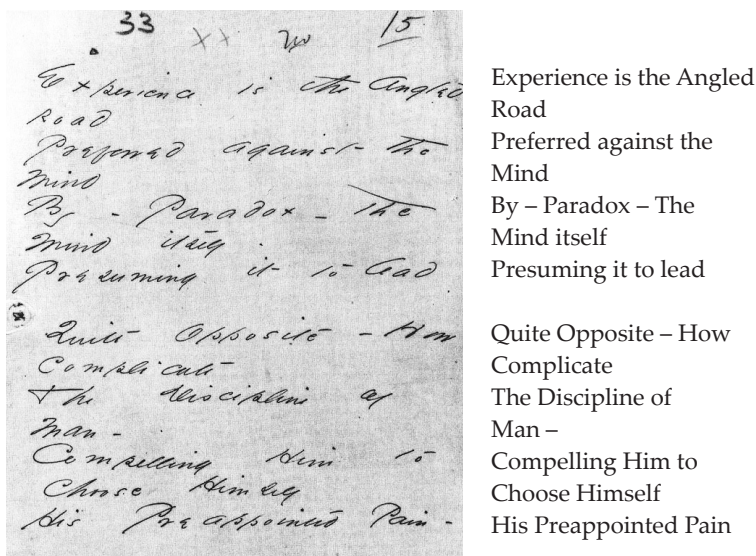 33 XX 15
Experience is the Angled
Road
Preferred against the
Mind
By - Paradox - The
Mind itself -
Presuming it to lead
Quite Opposite - How
Complicate
The Discipline of
Man -
Compelling Him to
Choose Himself
His Preappointed Pain -
Experience is the Angled
Road
Preferred against the
Mind
By – Paradox – The
Mind itself
Presuming it to lead
Quite Opposite – How
Complicate
The Discipline of
Man –
Compelling Him to
Choose Himself
His Preappointed Pain